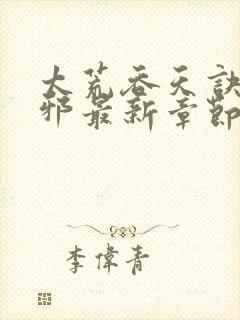 大荒吞天訣
邪最新章節
李偉青